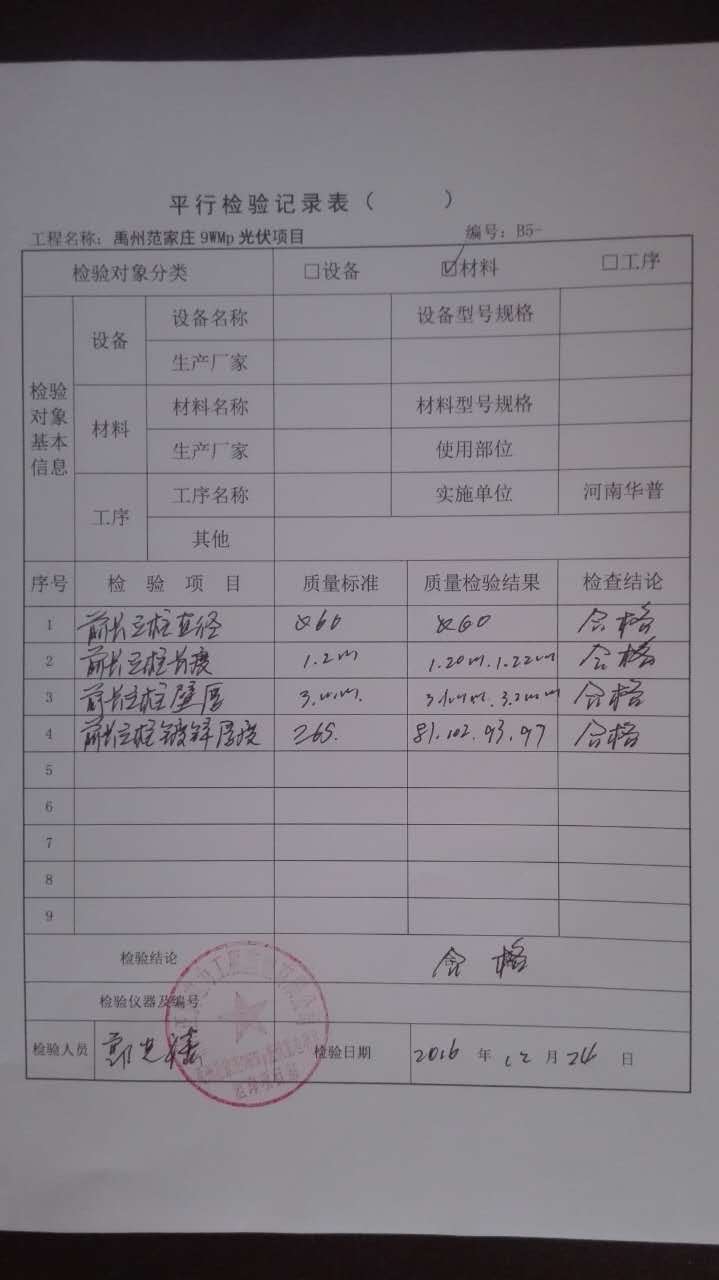 平行检验记录表（ ）
工程名称：禹州范家庄9WMp光伏项目 编号：B5-
检验对象分类 □设备 ☑材料 □工序
检验对象基本信息
设备 设备名称 设备型号规格
生产厂家
材料 材料名称 材料型号规格
生产厂家 使用部位
工序 工序名称 实施单位 河南华普
其他
序号 检验项目 质量标准 质量检验结果 检查结论
1 前长立柱直径 φ60 φ60 合格
2 前长立柱长度 1.2m 1.20m.1.22m 合格
3 前长立柱壁厚 3.mm. 3.1mm.3.2mm 合格
4 前长立柱镀锌厚度 ≥65. 81.102.93.97 合格
5
6
7
8
9
检验结论 合格
检验仪器及编号
检验人员 检验日期 2016年12月24日